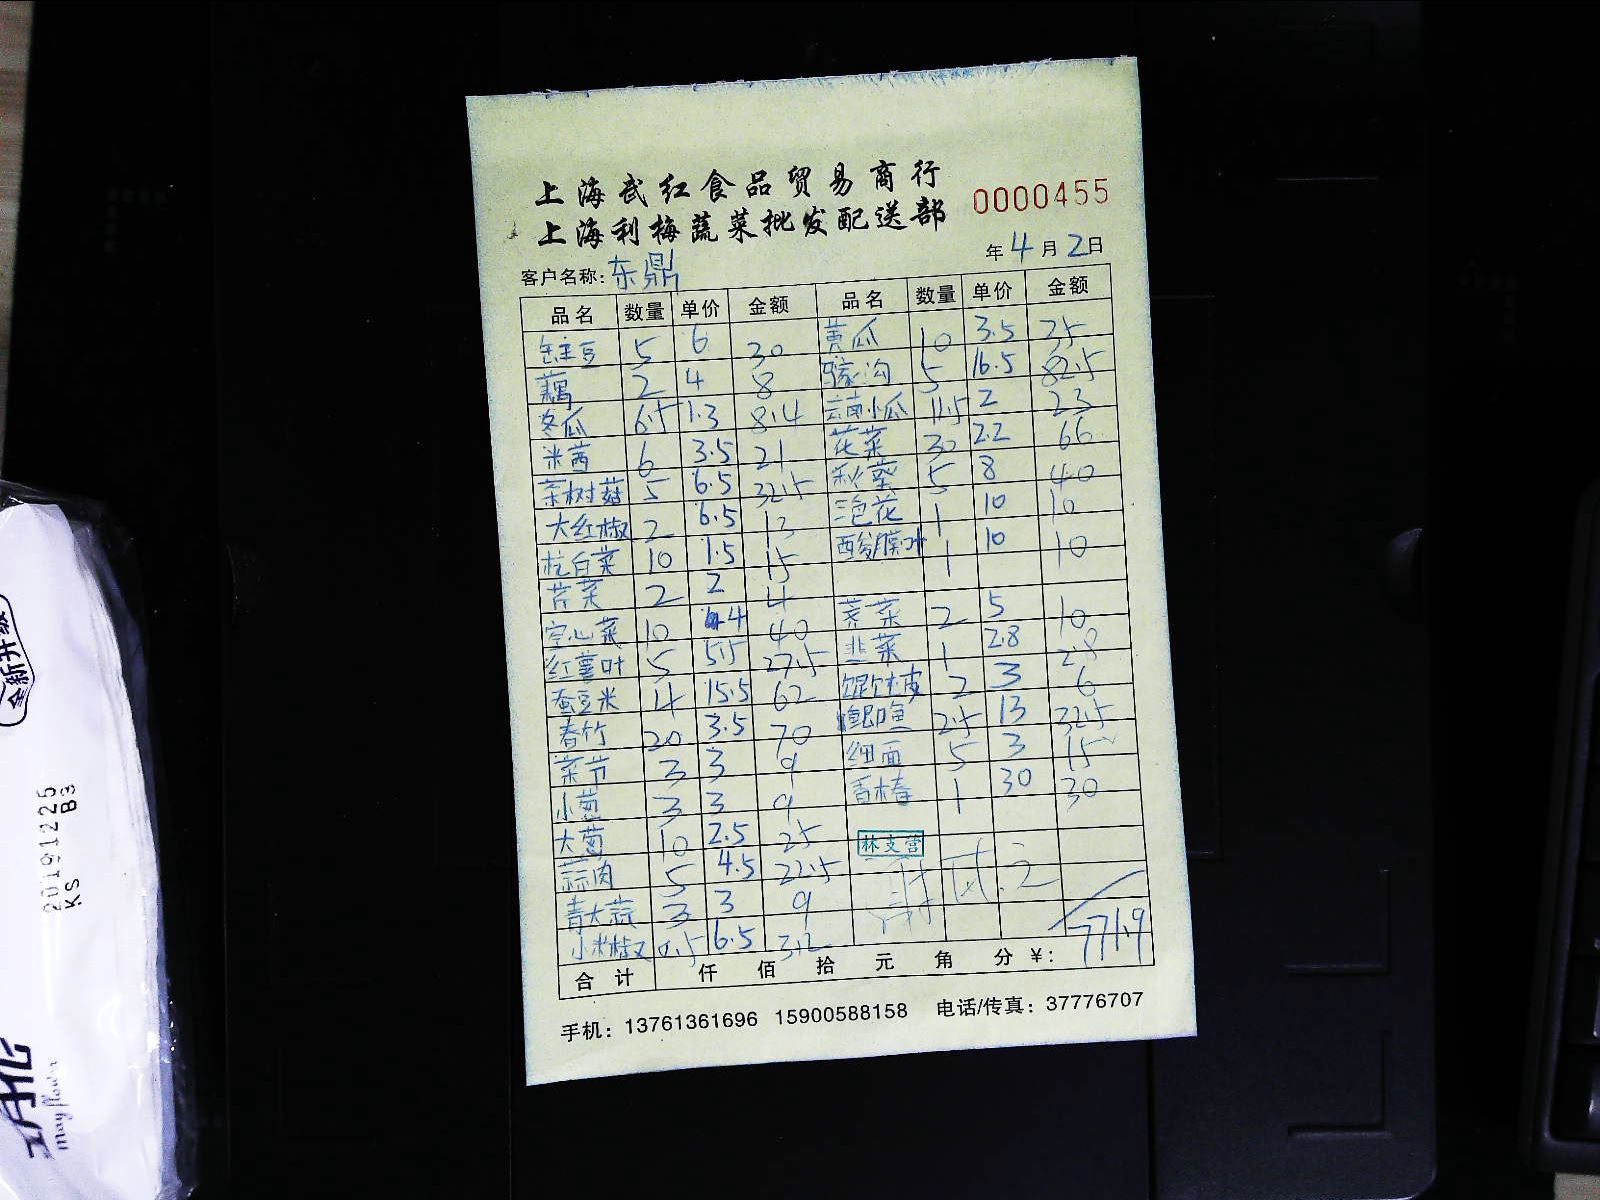 上海武红食品贸易商行
上海利梅蔬菜批发配送部
0000455
年 4 月 2 日
客户名称: 东鼎
品名 数量 单价 金额 品名 数量 单价 金额
5 6 30 黄瓜 10 3.5 35
藕 2 4 8 5 16.5 82.5
冬瓜 6.5 1.3 8.4 云南小瓜 11.5 2 23
米茜 6 3.5 21 花菜 30 2.2 66
茶树菇 5 6.5 32.5 秋葵 5 8 40
大红椒 2 6.5 13 1 10 10
杭白菜 10 1.5 15 1 10 10
芹菜 2 2 4
空心菜 10 4 40 荠菜 2 5 10
红薯叶 5 5.5 27.5 韭菜 1 2.8 2.8
蚕豆米 4 15.5 62 馄饨皮 2 3 6
春竹 20 3.5 70 2.5 13 32.5
菜节 3 3 9 细面 5 3 15
小葱 3 3 9 香椿 1 30 30
大葱 10 2.5 25
蒜肉 5 4.5 22.5 林支营
青大蒜 3 3 9
小米椒 0.5 6.5 3.2
合计 仟 佰 拾 元 角 分 ¥: 771.9
手机: 13761361696 15900588158 电话/传真: 37776707
全新升级
20191225
B3
KS
may flower